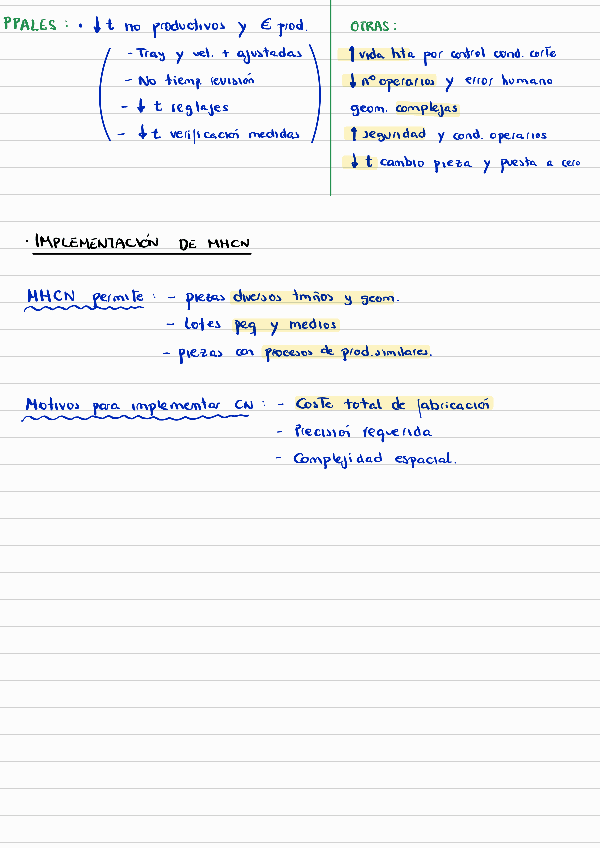 PPALES: • ↓ t no productivos y € prod.
- Tray y vel. + ajustadas
- No tiemp revisión
- ↓ t reglajes
- ↓ t verificación medidas
OTRAS:
↑ vida hta por control cond. corte
↓ nº operarios y error humano
geom. complejas
↑ seguridad y cond. operarios
↓ t cambio pieza y puesta a cero
· IMPLEMENTACIÓN DE MHCN
MHCN permite: - piezas diversos tmños y geom.
- lotes peq y medios
- piezas con procesos de prod. similares.
Motivos para implementar CN: - Coste total de fabricación
- Precisión requerida
- Complejidad espacial.